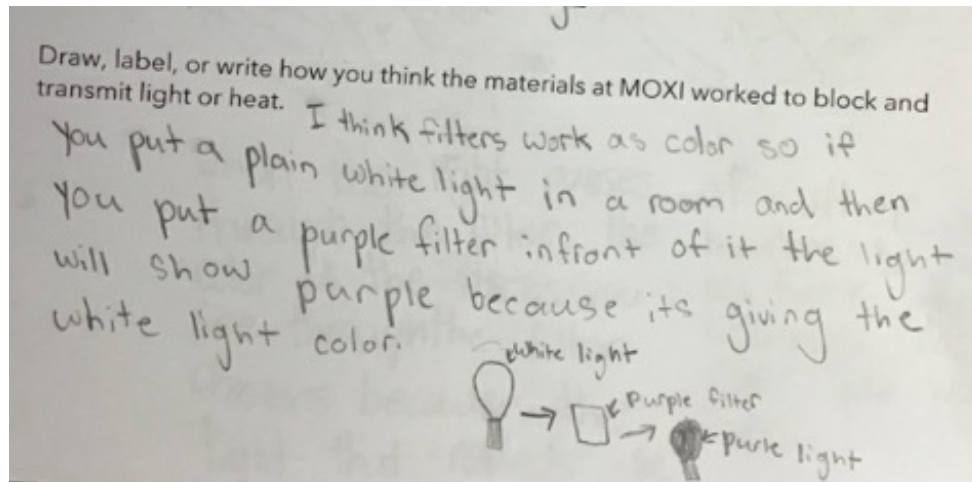 Draw, label, or write how you think the materials at MOXI worked to block and
transmit light or heat. I think filters work as color so if
You put a plain white light in a room and then
You put a purple filter infront of it the light
will show purple because its giving the
white light color.
white light
Purple filter
purle light